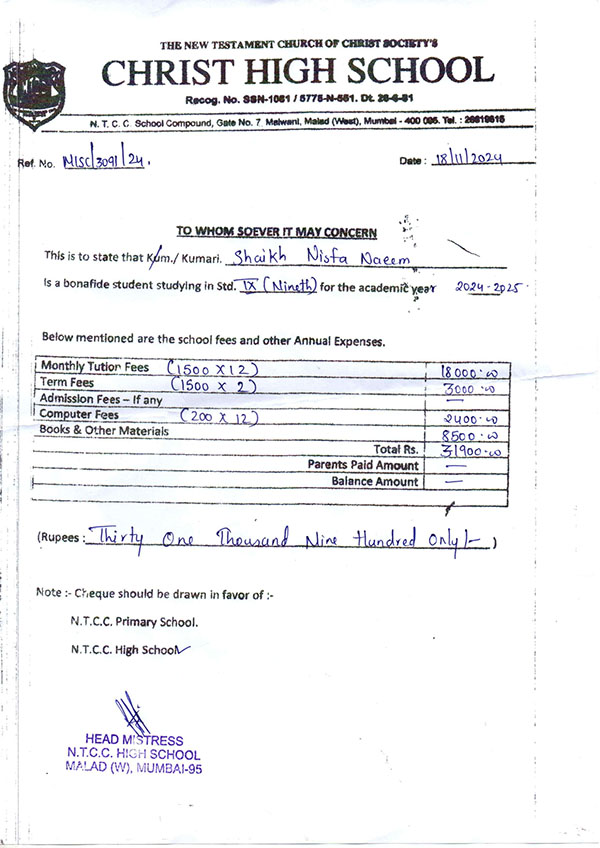 THE NEW TESTAMENT CHURCH OF CHRIST SOCIETY'S
CHRIST HIGH SCHOOL
Recog. No. SSN-1081 / 5775-N-581. Dt. 26-6-81
N. T. C. C. School Compound, Gate No. 7, Malwani, Malad (West), Mumbai - 400 095. Tel. : 28819815
Ref. No. MISC/3091/24. Date : 18/11/2024
TO WHOM SOEVER IT MAY CONCERN
This is to state that Kum./ Kumari. Shaikh Nisfa Naeem
Is a bonafide student studying in Std. IX (Nineth) for the academic year 2024-2025.
Below mentioned are the school fees and other Annual Expenses.
Monthly Tution Fees (1500 X 12) 18000.00
Term Fees (1500 X 2) 3000.00
Admission Fees – If any —
Computer Fees (200 X 12) 2400.00
Books & Other Materials 8500.00
Total Rs. 31900.00
Parents Paid Amount —
Balance Amount —
(Rupees : Thirty One Thousand Nine Hundred Only/- )
Note :- Cheque should be drawn in favor of :-
N.T.C.C. Primary School.
N.T.C.C. High School ✓
HEAD MISTRESS
N.T.C.C. HIGH SCHOOL
MALAD (W), MUMBAI-95